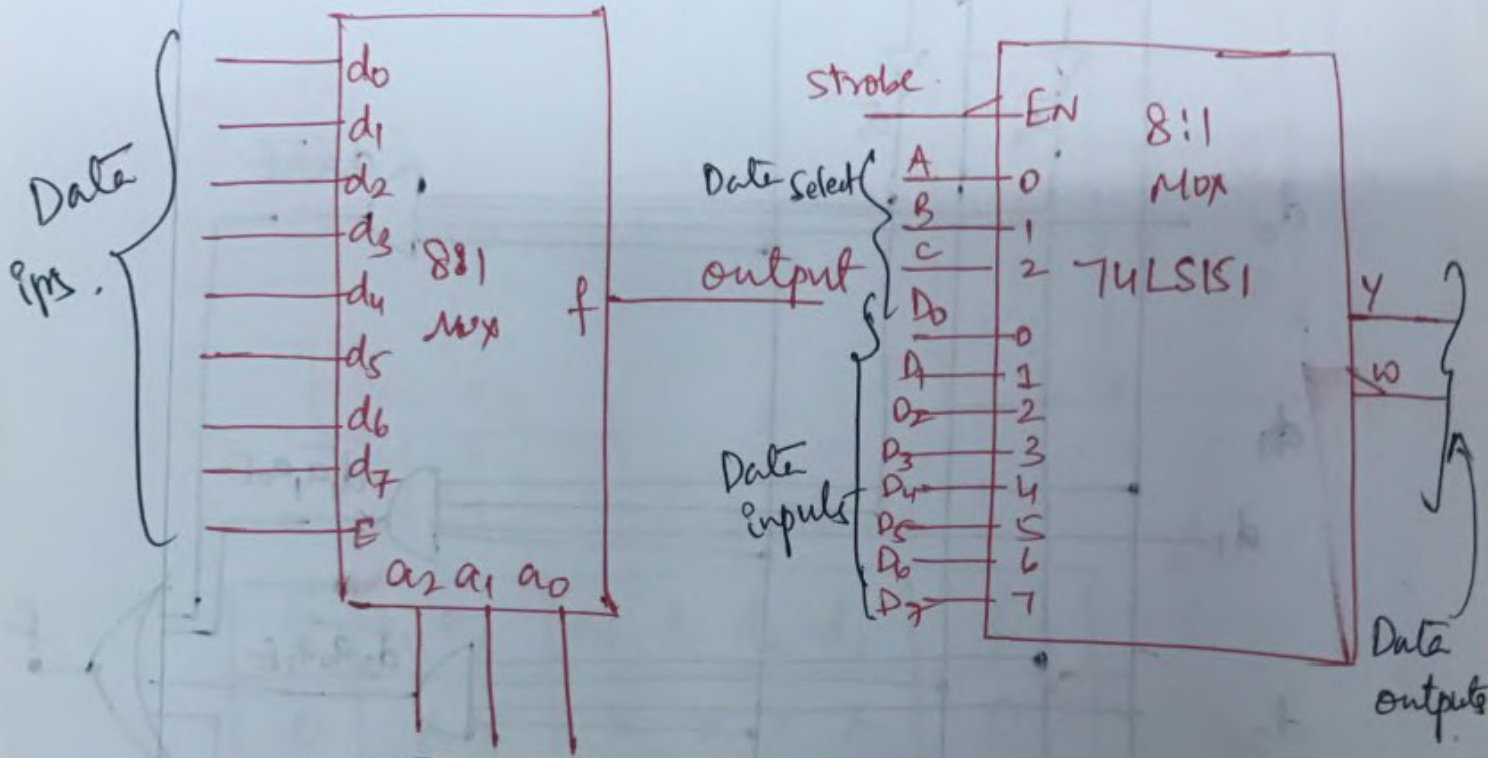 Data
ips.
d0
d1
d2
d3
d4
d5
d6
d7
E
8:1
MUX
f
output
a2 a1 a0
Strobe
EN
Data Select
A 0
B 1
C 2
8:1
MUX
74LS151
Data
inputs
D0 0
D1 1
D2 2
D3 3
D4 4
D5 5
D6 6
D7 7
Y
W
Data
outputs